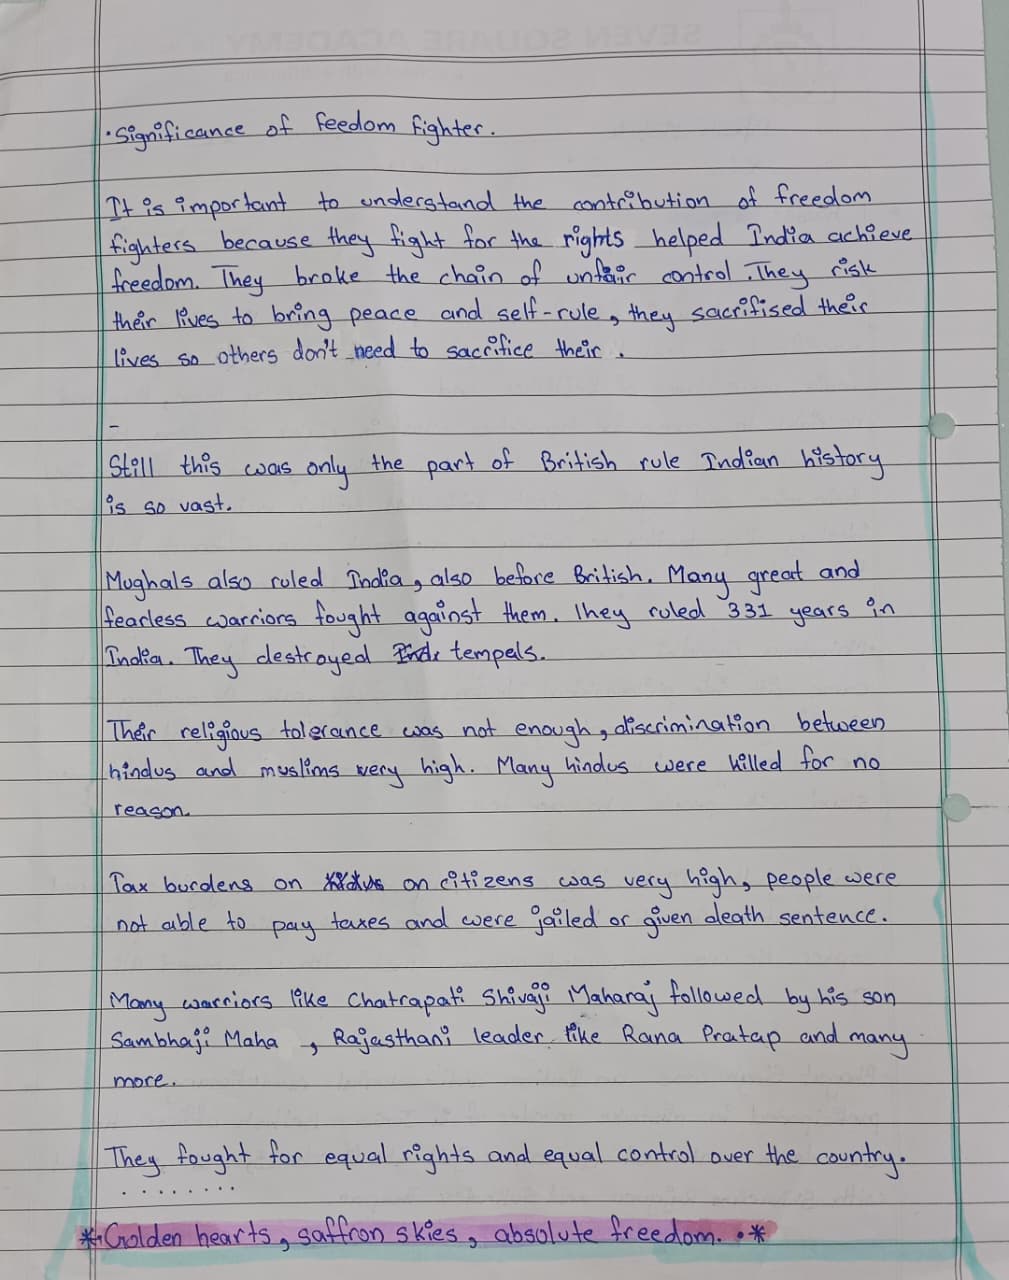 SEVEN SQUARE ACADEMY
• Significance of feedom fighter.
It is important to understand the contribution of freedom
fighters because they fight for the rights helped India achieve
freedom. They broke the chain of unfair control. They risk
their lives to bring peace and self-rule, they sacrifised their
lives so others don't need to sacrifice their.
-
Still this was only the part of British rule Indian history
is so vast.
Mughals also ruled India, also before British. Many great and
fearless warriors fought against them. They ruled 331 years in
India. They destroyed tempels.
Their religious tolerance was not enough, discrimination between
hindus and muslims very high. Many hindus were killed for no
reason.
Tax burdens on on citizens was very high, people were
not able to pay taxes and were jailed or given death sentence.
Many warriors like Chatrapati Shivaji Maharaj followed by his son
Sambhaji Maha , Rajasthani leader like Rana Pratap and many
more.
They fought for equal rights and equal control over the country.
........
* Golden hearts, saffron skies, absolute freedom. • *